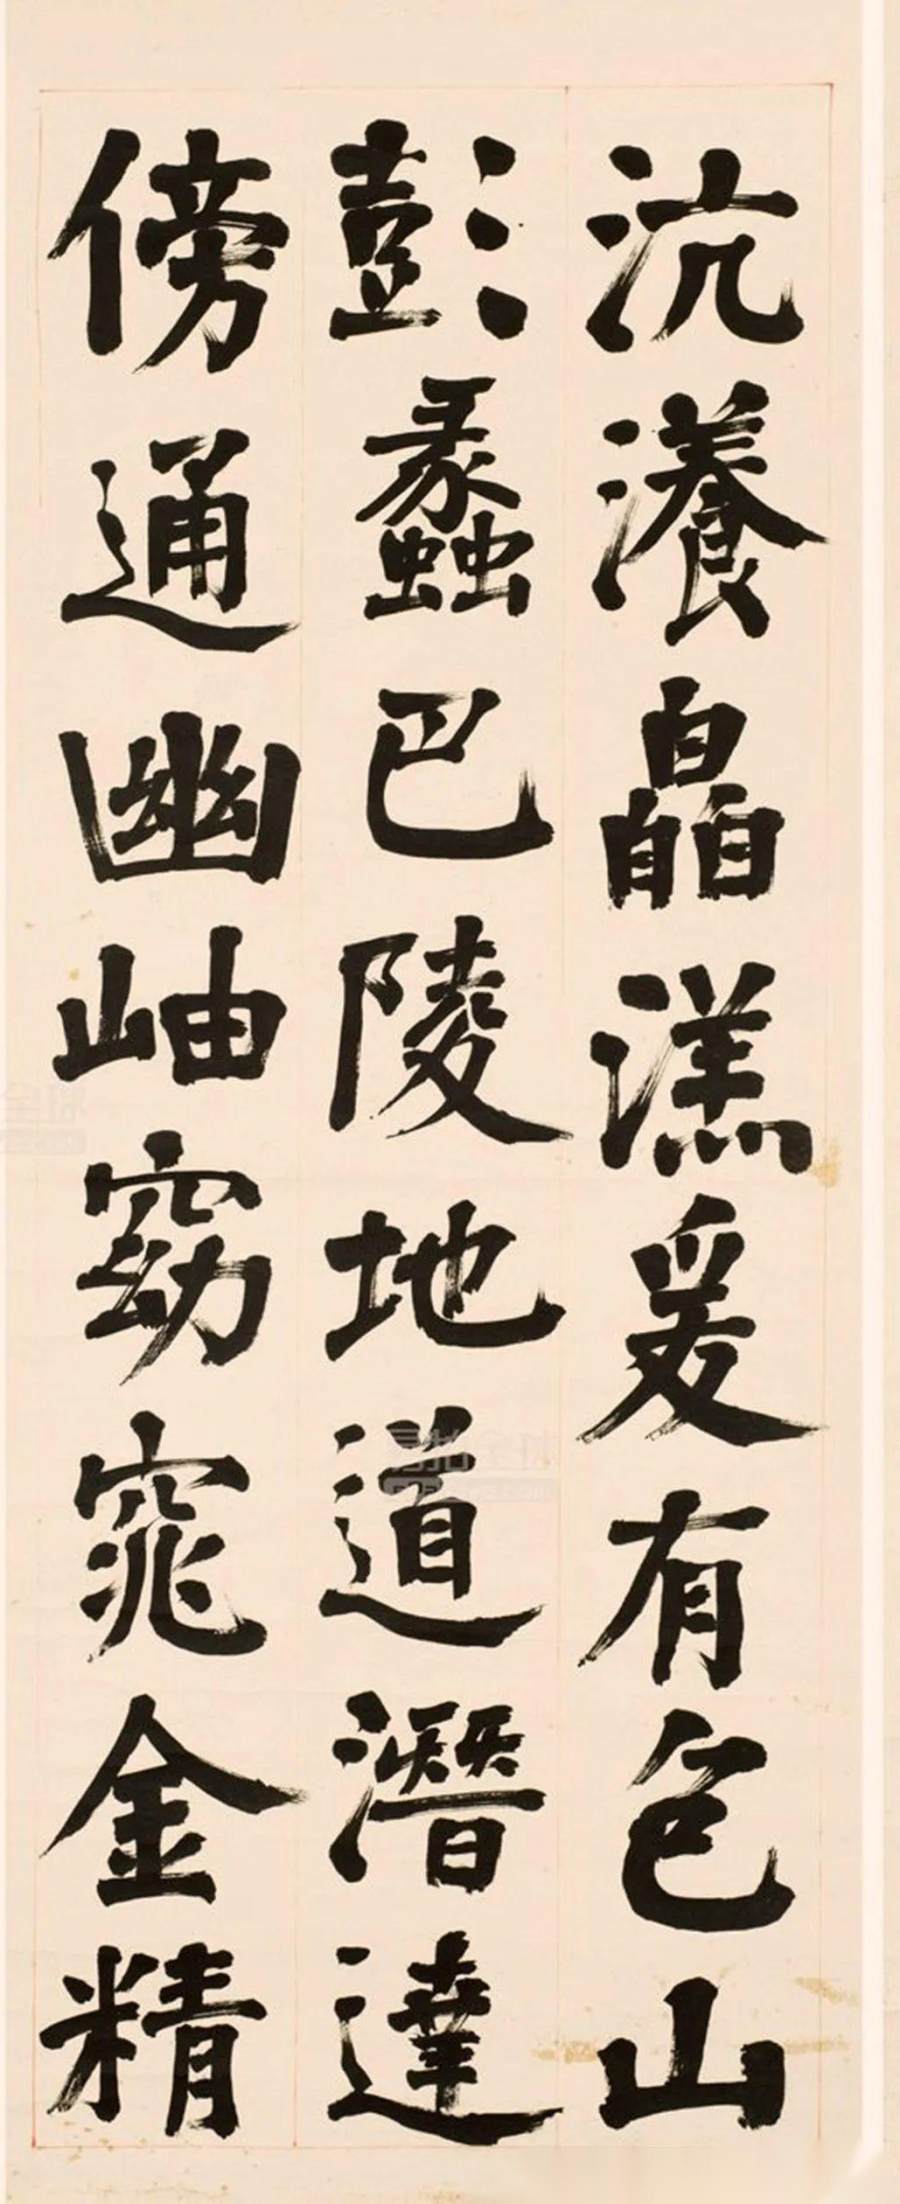 沆瀁皛溔爰有色山
彭蠡巴陵地道潛達
傍通幽岫窈窕金精